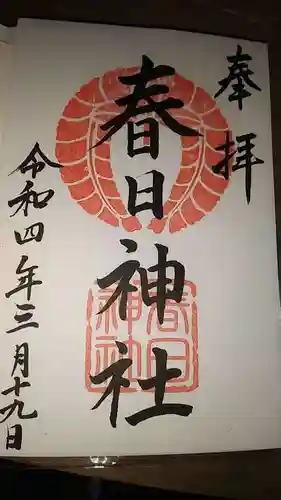 奉拝
春日神社
春日
神社
令和四年三月十九日